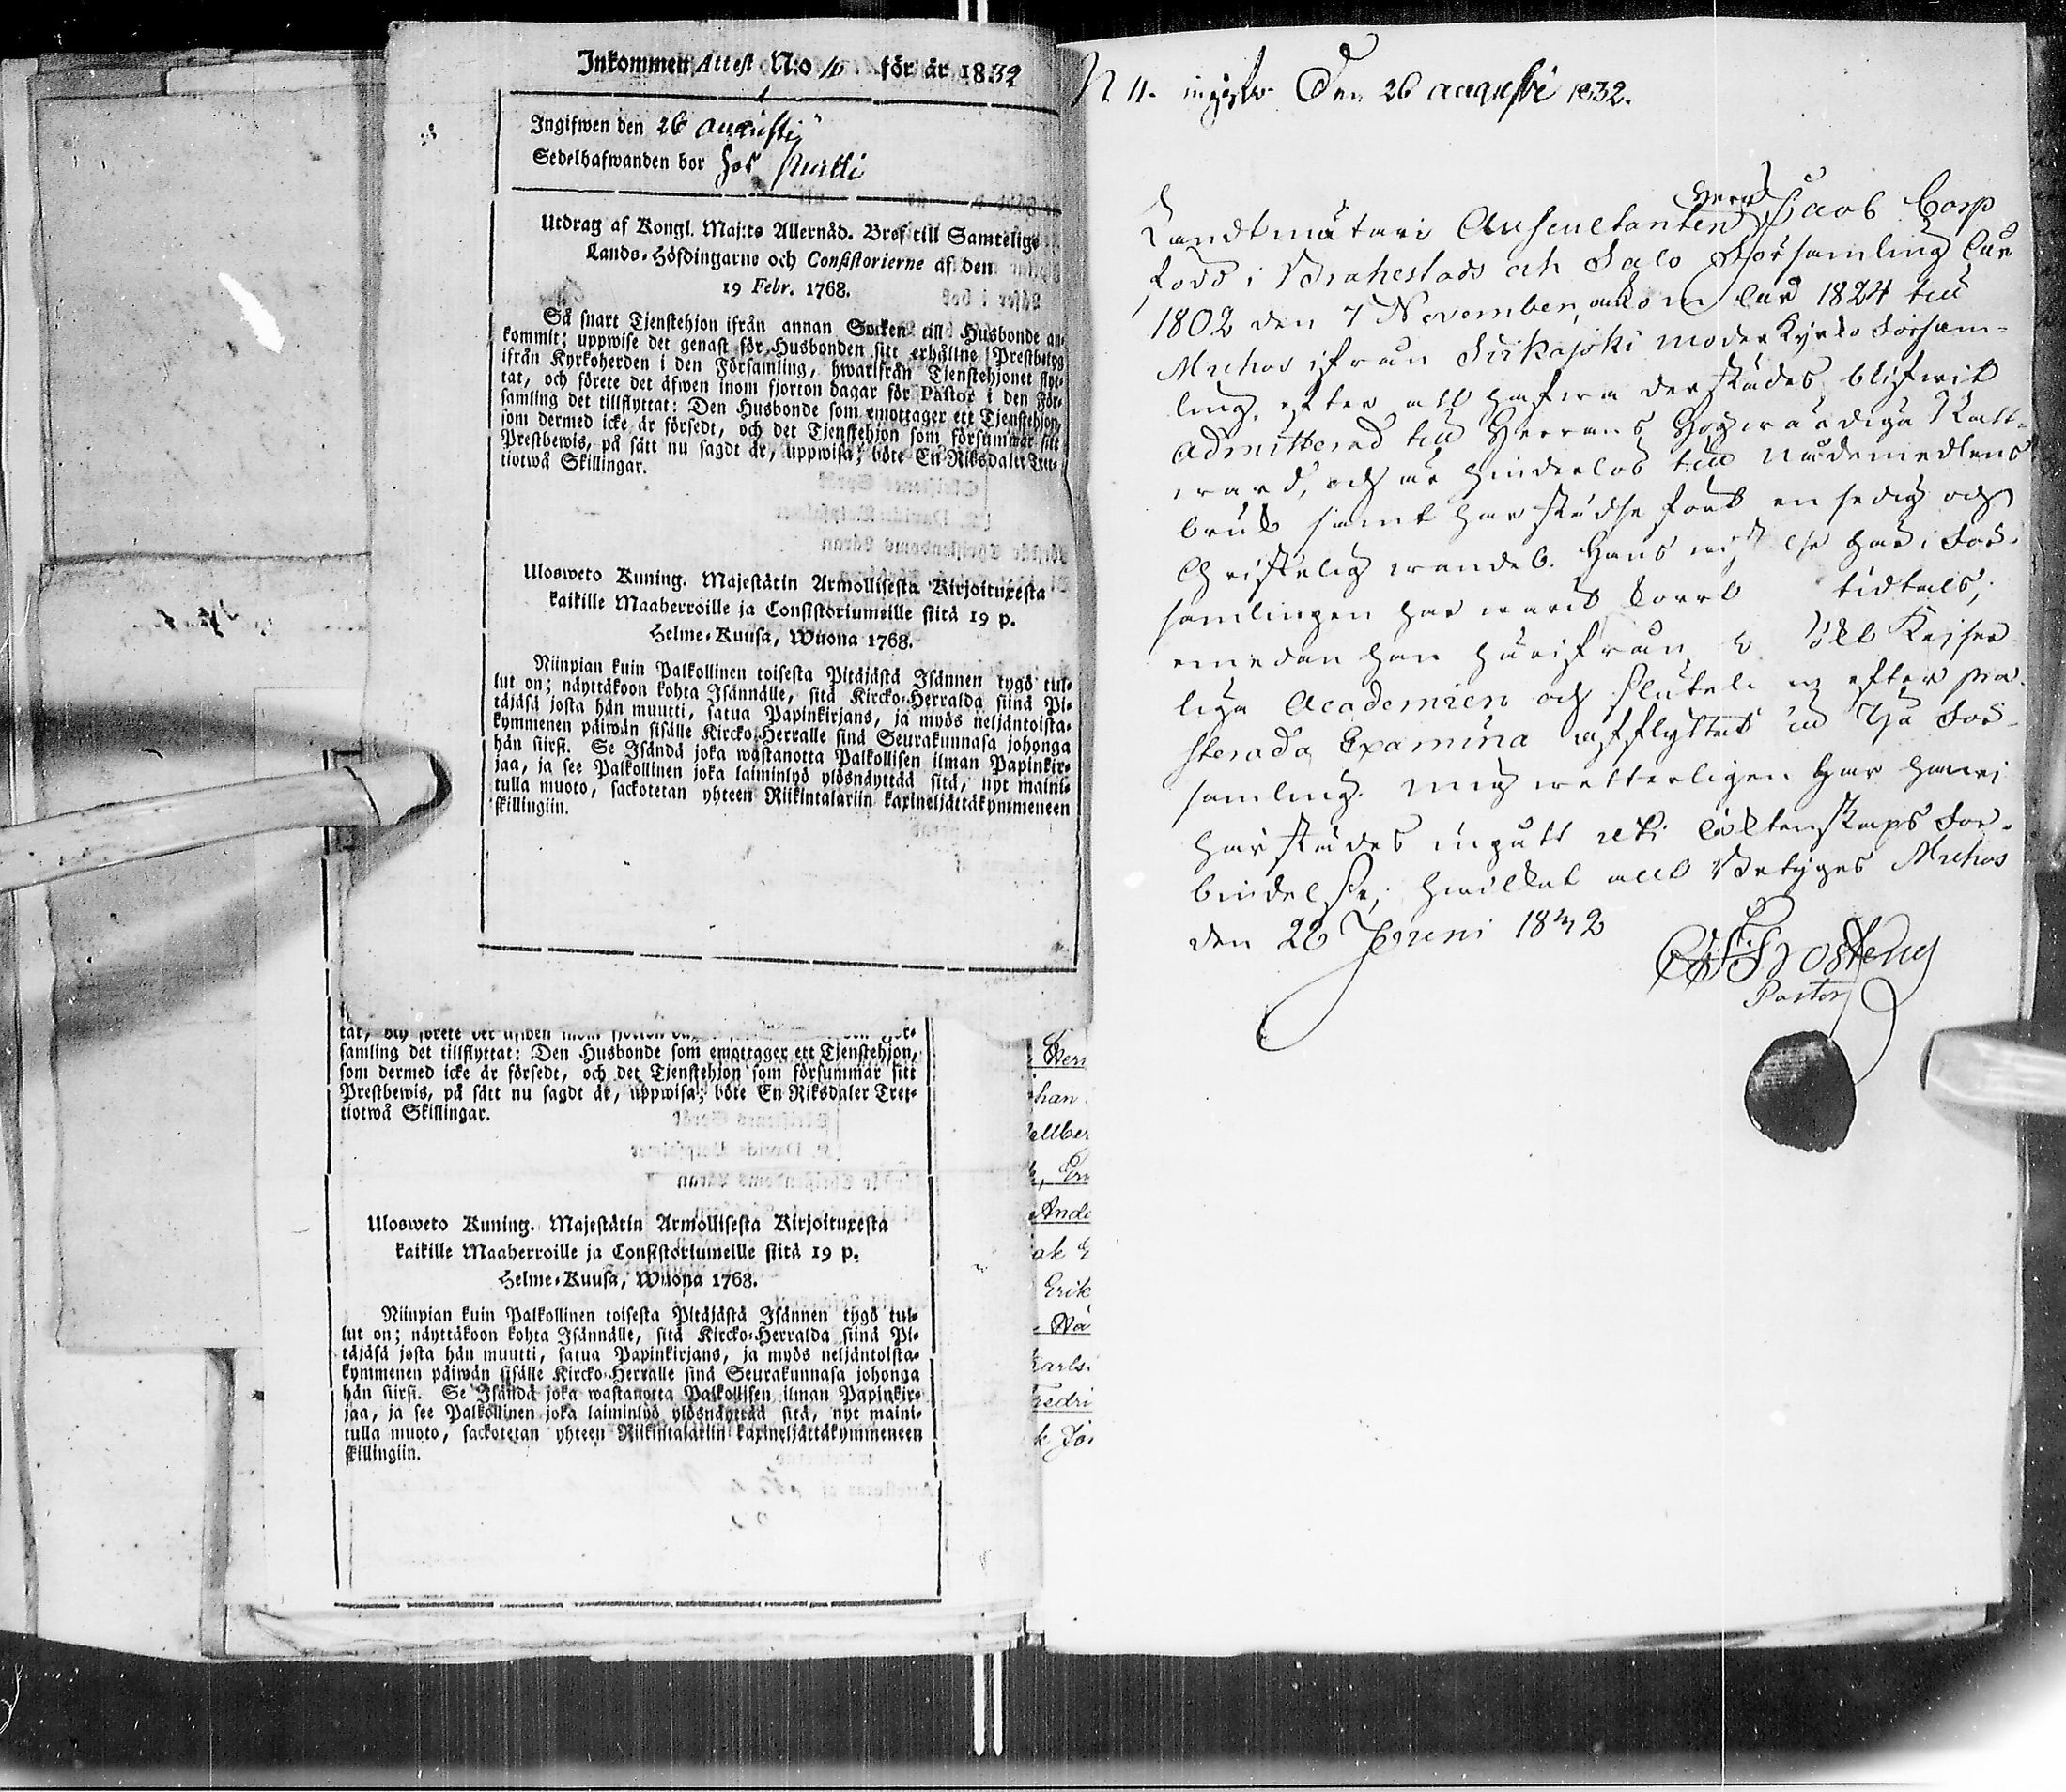 Inkommen Attest N:o 10 för år 1832
Ingifwen den 26 augusti
Sedelhafwanden bor hos
Utdrag af Kongl. Maj:ts Allernåd. Bref till Samtelige
Lands-Höfdingarne och Consistorierne af den
19 Febr. 1768.
Så snart Tjenstehjon ifrån annan Socken till Husbonde an-
kommit; uppwise det genast för Husbonden sitt erhållne Prestbetyg
ifrån Kyrkoherden i den Församling, hwarifrån Tjenstehjonet flyt-
tat, och förete det äfwen inom fjorton dagar för Pastor i den För-
samling det tillflyttat: Den Husbonde som emottager ett Tjenstehjon,
som dermed icke är försedt, och det Tjenstehjon som försummar sitt
Prestbewis, på sätt nu sagdt är, uppwisa; böte En Riksdaler Tret-
tiotwå Skillingar.
Ulosweto Kuning. Majestätin Armollisesta Kirjoituxesta
kaikille Maaherroille ja Consistoriumeille siitä 19 p.
Helme-Kuusa, Wuona 1768.
Niinpian kuin Palkollinen toisesta Pitäjästä Isännen tygö tul-
lut on; näyttäkoon kohta Isännälle, sitä Kircko-Herralda siinä Pi-
täjäsä josta hän muutti, satua Papinkirjans, ja myös neljäntoista-
kymmenen päiwän sisälle Kircko-Herralle sinä Seurakunnasa johonga
hän siirsi. Se Isändä joka wastanotta Palkollisen ilman Papinkir-
jaa, ja see Palkollinen joka laiminlyö ylösnäyttää sitä, nyt maini-
tulla muoto, sackotetan yhteen Riikintalariin kaxineljättäkymmeneen
skillingiin.
samling det tillflyttat: Den Husbonde som emottager ett Tjenstehjon,
som dermed icke är försedt, och det Tjenstehjon som försummar sitt
Prestbewis, på sätt nu sagdt är, uppwisa; böte En Riksdaler Tret-
tiotwå Skillingar.
Ulosweto Kuning. Majestätin Armollisesta Kirjoituxesta
kaikille Maaherroille ja Consistoriumeille siitä 19 p.
Helme-Kuusa, Wuona 1768.
Niinpian kuin Palkollinen toisesta Pitäjästä Isännen tygö tul-
lut on; näyttäkoon kohta Isännälle, sitä Kircko-Herralda siinä Pi-
täjäsä josta hän muutti, satua Papinkirjans, ja myös neljäntoista-
kymmenen päiwän sisälle Kircko-Herralle sinä Seurakunnasa johonga
hän siirsi. Se Isändä joka wastanotta Palkollisen ilman Papinkir-
jaa, ja see Palkollinen joka laiminlyö ylösnäyttää sitä, nyt maini-
tulla muoto, sackotetan yhteen Riikintalariin kaxineljättäkymmeneen
skillingiin.
N 11. ingifw. Den 26 augusti 1832.
Herr
Landtmäteri Auscultanten Jacob Corp
född i Brahestads och Salo Församling år
1802 den 7 November, ankom år 1824 till
Muhos ifrån Siikajoki moder Kyrko Försam-
ling, efter att hafwa derstädes blifwit
admitterad till Herrans Högwärdiga Natt-
ward, och är hinderlös till Nådemedlens
bruk samt har städse fört en sedig och
Christelig wandel. Hans wistelse här i För-
samlingen har warit kort tidtals,
emedan han härifrån
liga Academien och slutel. efter præ-
sterada Examina afflyttat
samling. mig wetterligen har han ej
härstädes ingått äktenskaps För-
bindelse; hwilket allt Betyges Muhos
den 26 Juni 1832
Frosterus
Pastor